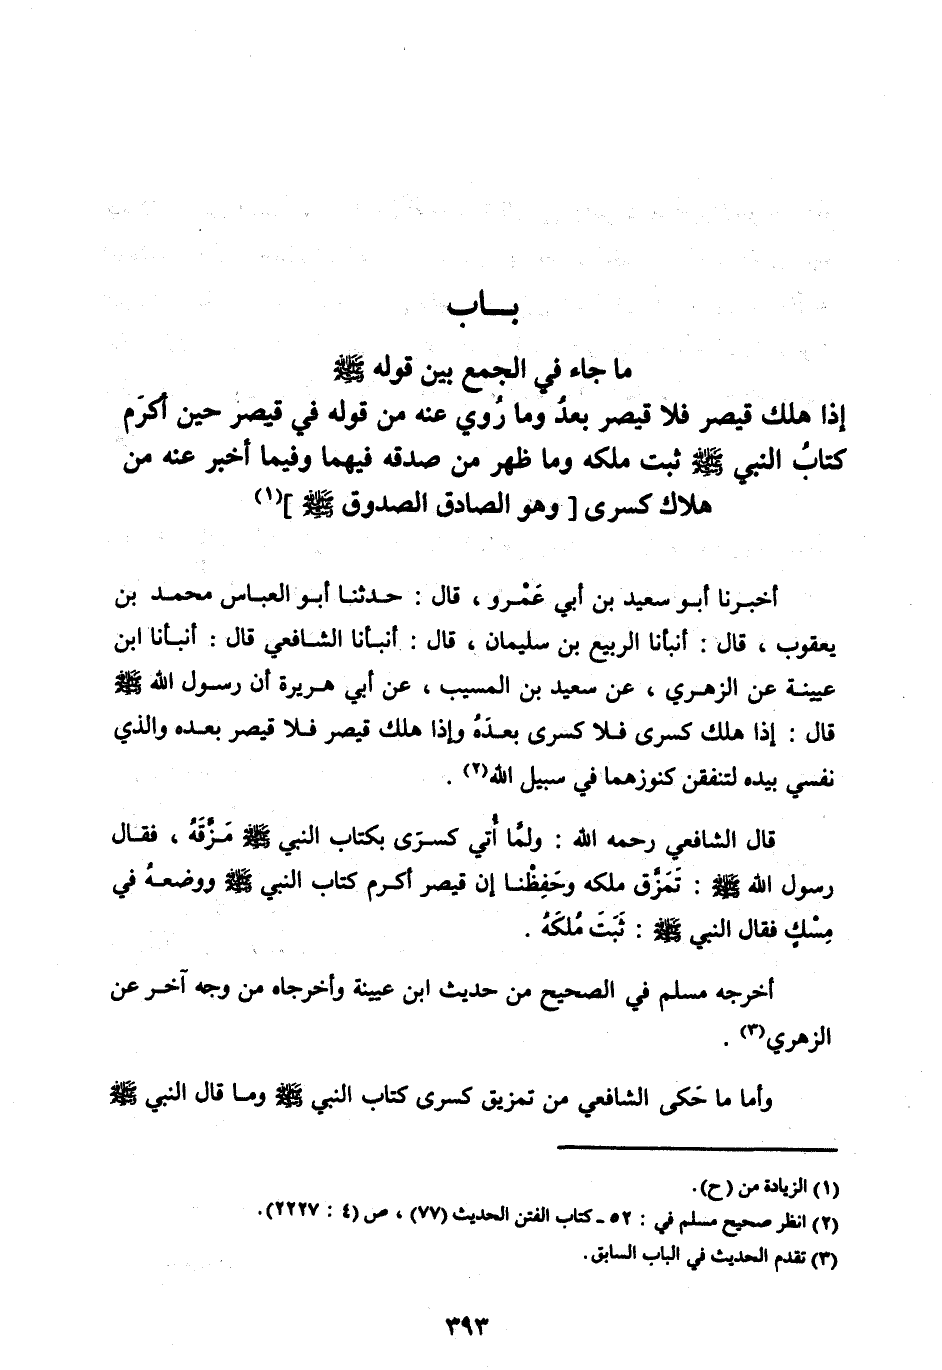 بـــاب
ما جاء في الجمع بين قوله ﷺ
إذا هلك قيصر فلا قيصر بعدُ وما رُوي عنه من قوله في قيصر حين أكرَم
كتابُ النبي ﷺ ثبت ملكه وما ظهر من صدقه فيهما وفيما أخبر عنه من
هلاك كسرى [ وهو الصادق الصدوق ﷺ ](١)
أخبـرنا أبـو سعيد بن أبي عَمْـرو ، قال : حـدثنـا أبـو العبـاس محمـد بن
يعقوب ، قال : أنبأنا الربيع بن سليمان ، قال : أنبـأنا الشـافعي قال : أنبـأنا ابن
عيينـة عن الزهـري ، عن سعيد بن المسيب ، عن أبي هـريرة أن رسـول الله ﷺ
قال : إذا هلك كسرى فـلا كسرى بعـدَهُ وإذا هلك قيصر فـلا قيصر بعـده والذي
نفسي بيده لتنفقن كنوزهما في سبيل الله(٢) .
قال الشافعي رحمه الله : ولمَّا أُتي كسـرَى بكتاب النبي ﷺ مَـزَّقَهُ ، فقـال
رسول الله ﷺ : تَمَزَّق ملكه وحَفِظْنـا إن قيصر أكـرم كتاب النبي ﷺ ووضعـهُ في
مِسْكٍ فقال النبي ﷺ : ثَبَتَ مُلكَهُ .
أخرجه مسلم في الصحيح من حديث ابن عيينة وأخرجاه من وجه آخـر عن
الزهري(٣) .
وأما ما حَكى الشافعي من تمزيق كسرى كتاب النبي ﷺ ومـا قال النبي ﷺ
(١) الزيادة من (ح).
(٢) انظر صحيح مسلم في : ٥٢ ـ كتاب الفتن الحديث (٧٧) ، ص (٤ : ٢٢٢٧).
(٣) تقدم الحديث في الباب السابق.
٣٩٣